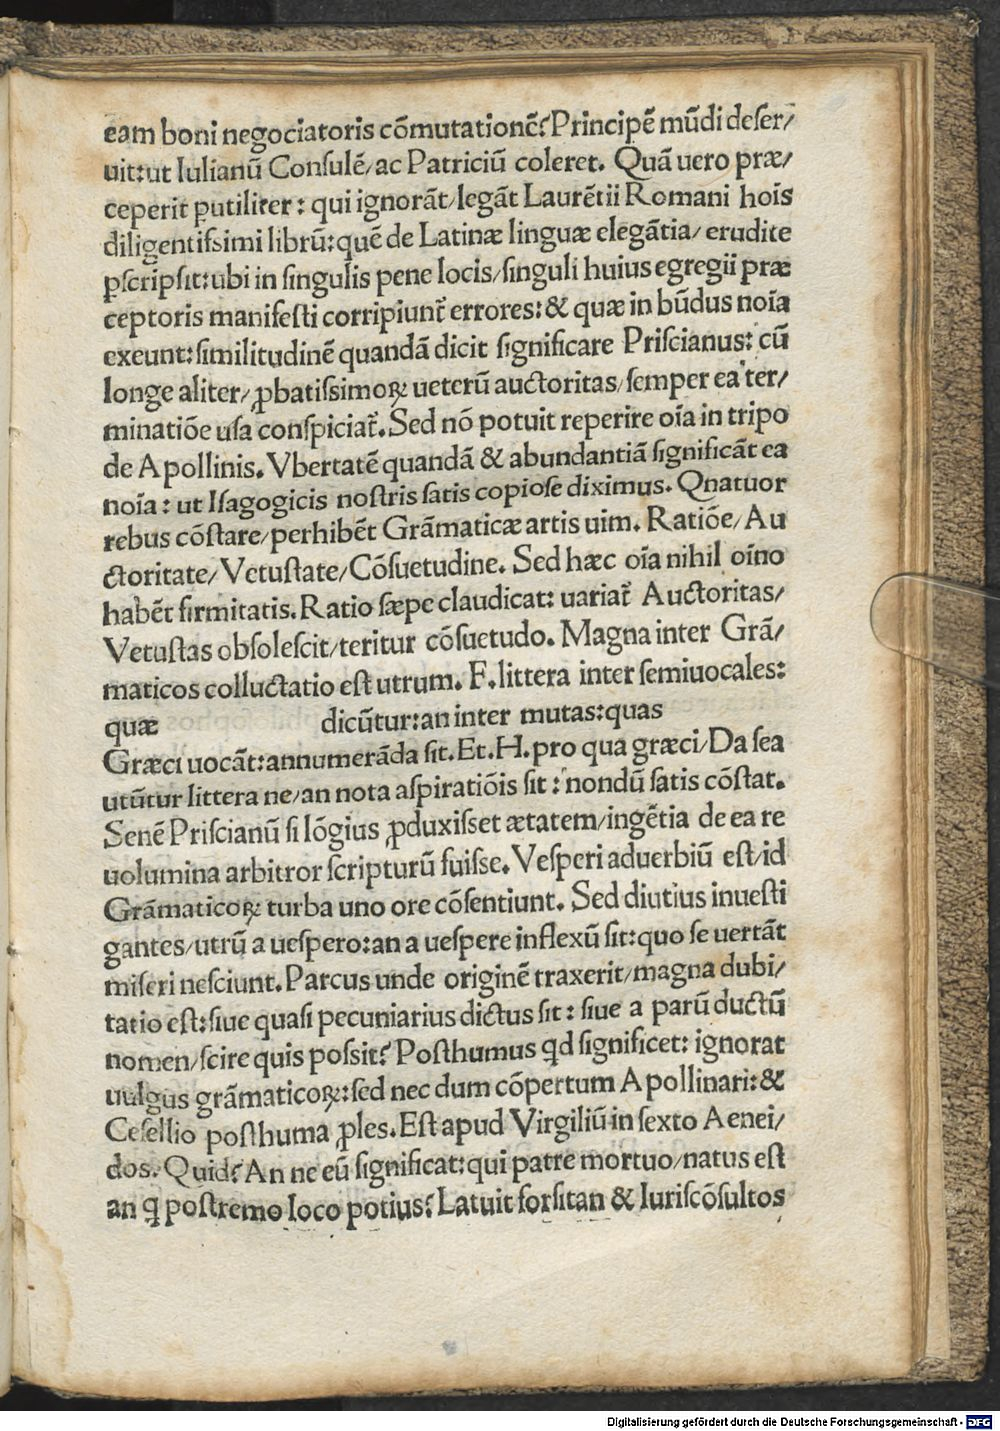 eam boni negociatoris cōmutationē? Principē mūdi deſer/
uit: ut Iulianū Conſulē/ ac Patriciū coleret. Quā uero præ/
ceperit ꝑutiliter: qui ignorāt/ legāt Laurētii Romani hoīs
diligentiſsimi librū: quē de Latinæ linguæ elegātia/ erudite
ꝑſcripſit: ubi in ſingulis pene locis/ ſinguli huius egregii præ
ceptoris manifeſti corripiunt᷑ errores: & quæ in būdus noīa
exeunt: ſimilitudinē quandā dicit ſignificare Priſcianus: cū
longe aliter/ ꝓbatiſsimoꝝ ueterū auctoritas/ ſemper ea ter/
minatiōe uſa conſpiciat᷑. Sed nō potuit reperire oīa in tripo
de Apollinis. Vbertatē quandā & abundantiā ſignificāt ea
noīa: ut Iſagogicis noſtris ſatis copioſe diximus. Quatuor
rebus cōſtare/ perhibēt Grāmaticæ artis uim. Ratiōe/ Au
ctoritate/ Vetuſtate/ Cōſuetudine. Sed hæc oīa nihil oīno
habēt firmitatis. Ratio ſæpe claudicat: uariat᷑ Auctoritas/
Vetuſtas obſoleſcit/ teritur cōſuetudo. Magna inter Grā/
maticos colluctatio eſt utrum. F. littera inter ſemiuocales:
quæ dicūtur: an inter mutas: quas
Græci uocāt: annumerāda ſit. Et. H. pro qua græci/ Da ſea
utūtur littera ne/ an nota aſpiratiōis ſit: nondū ſatis cōſtat.
Senē Priſcianū ſi lōgius ꝓduxiſset ætatem/ ingētia de ea re
uolumina arbitror ſcripturū fuiſse. Veſperi aduerbiū eſt/ id
Grāmaticoꝝ turba uno ore cōſentiunt. Sed diutius inueſti
gantes/ utrū a ueſpero: an a ueſpere inflexū ſit: quo ſe uertāt
miſeri neſciunt. Parcus unde originē traxerit/ magna dubi/
tatio eſt: ſiue quaſi pecuniarius dictus ſit: ſiue a parū ductū
nomen/ ſcire quis poſsit? Poſthumus qd ſignificet: ignorat
uulgus grāmaticoꝝ: ſed nec dum cōpertum Apollinari: &
Ceſellio poſthuma ꝓles. Eſt apud Virgiliū in ſexto Aenei/
dos. Quid? An ne eū ſignificat: qui patre mortuo/ natus eſt
an ꝗ poſtremo loco potius? Latuit forſitan & Iuriſcōſultos
Digitalisierung gefördert durch die Deutsche Forschungsgemeinschaft - DFG